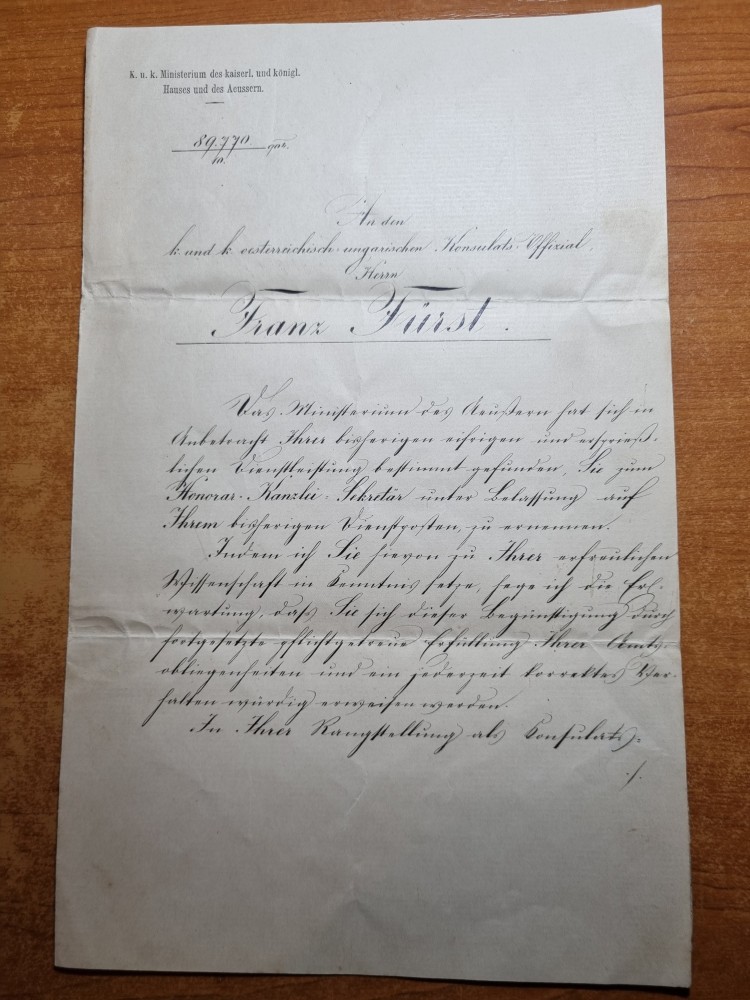 K. u. k. Ministerium des kaiserl. und königl.
Hauses und des Aeussern.
89.770
10.
An den
k. und k. oesterreichisch-ungarischen Konsulats-Offizial,
Herrn
Franz Fürst.
Das Ministerium des Aeußern hat sich in
Anbetracht Ihrer bisherigen eifrigen und ersprieß-
lichen Dienstleistung bestimmt gefunden, Sie zum
Honorar-Kanzlei-Sekretär unter Belassung auf
Ihrem bisherigen Dienstposten, zu ernennen.
Indem ich Sie hievon zu Ihrer erfreulichen
Wissenschaft in Kenntnis setze, hege ich die Er-
wartung, daß Sie sich dieser Begünstigung durch
fortgesetzte pflichtgetreue Erfüllung Ihrer Amts-
obliegenheiten und ein jederzeit korrektes Ver-
halten würdig erweisen werden.
In Ihrer Rangstellung als Konsulats-
./.